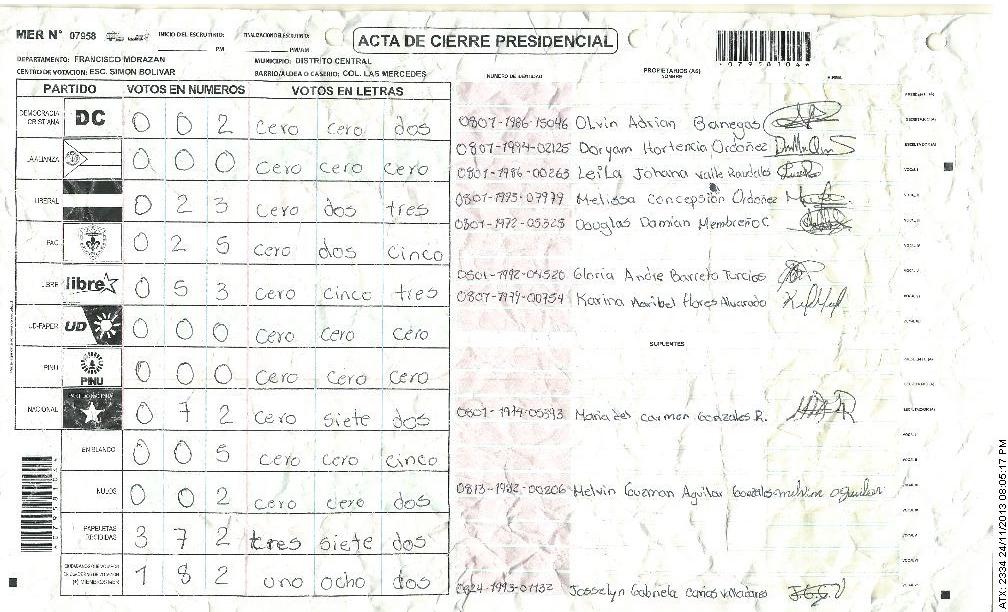 MER N° 07958 INICIO DEL ESCRUTINIO: PM FINALIZACION ESCRUTINIO: PM/AM
ACTA DE CIERRE PRESIDENCIAL
*07958104*
DEPARTAMENTO: FRANCISCO MORAZAN MUNICIPIO: DISTRITO CENTRAL
CENTRO DE VOTACION: ESC. SIMON BOLIVAR BARRIO/ALDEA O CASERIO: COL. LAS MERCEDES
NUMERO DE IDENTIDAD PROPIETARIOS (AS) NOMBRE FIRMA
PARTIDO VOTOS EN NUMEROS VOTOS EN LETRAS
DEMOCRACIA CRISTIANA DC 0 0 2 cero cero dos
LA ALIANZA 0 0 0 cero cero cero
LIBERAL 0 2 3 cero dos tres
PAC 0 2 5 cero dos cinco
LIBRE libre 0 5 3 cero cinco tres
UD-FAPER UD 0 0 0 cero cero cero
PINU PINU 0 0 0 cero cero cero
NACIONAL 0 7 2 cero siete dos
EN BLANCO 0 0 5 cero cero cinco
NULOS 0 0 2 cero cero dos
PAPELETAS RECIBIDAS 3 7 2 tres siete dos
1 8 2 uno ocho dos
0801-1986-15046 Olvin Adrian Banegas
0801-1994-02125 Doryam Hortencia Ordoñez
0801-1986-00263 Leila Johana Valle Raudales
0801-1995-07979 Melissa Concepsión Ordoñez
0801-1972-05325 Douglas Damian Membreño C
0801-1992-04520 Gloria Andre Barreto Turcios
0801-1979-00754 Karina Maribel Flores Alvarado
SUPLENTES
0801-1974-05393 Maria del Carmen Gonzales R.
0813-1982-00206 Melvin Guzman Aguilar Gonzales
0824-1993-01132 Josselyn Gabriela Canos Valladares
ATX-2334 24/11/2013 08:05:17 PM